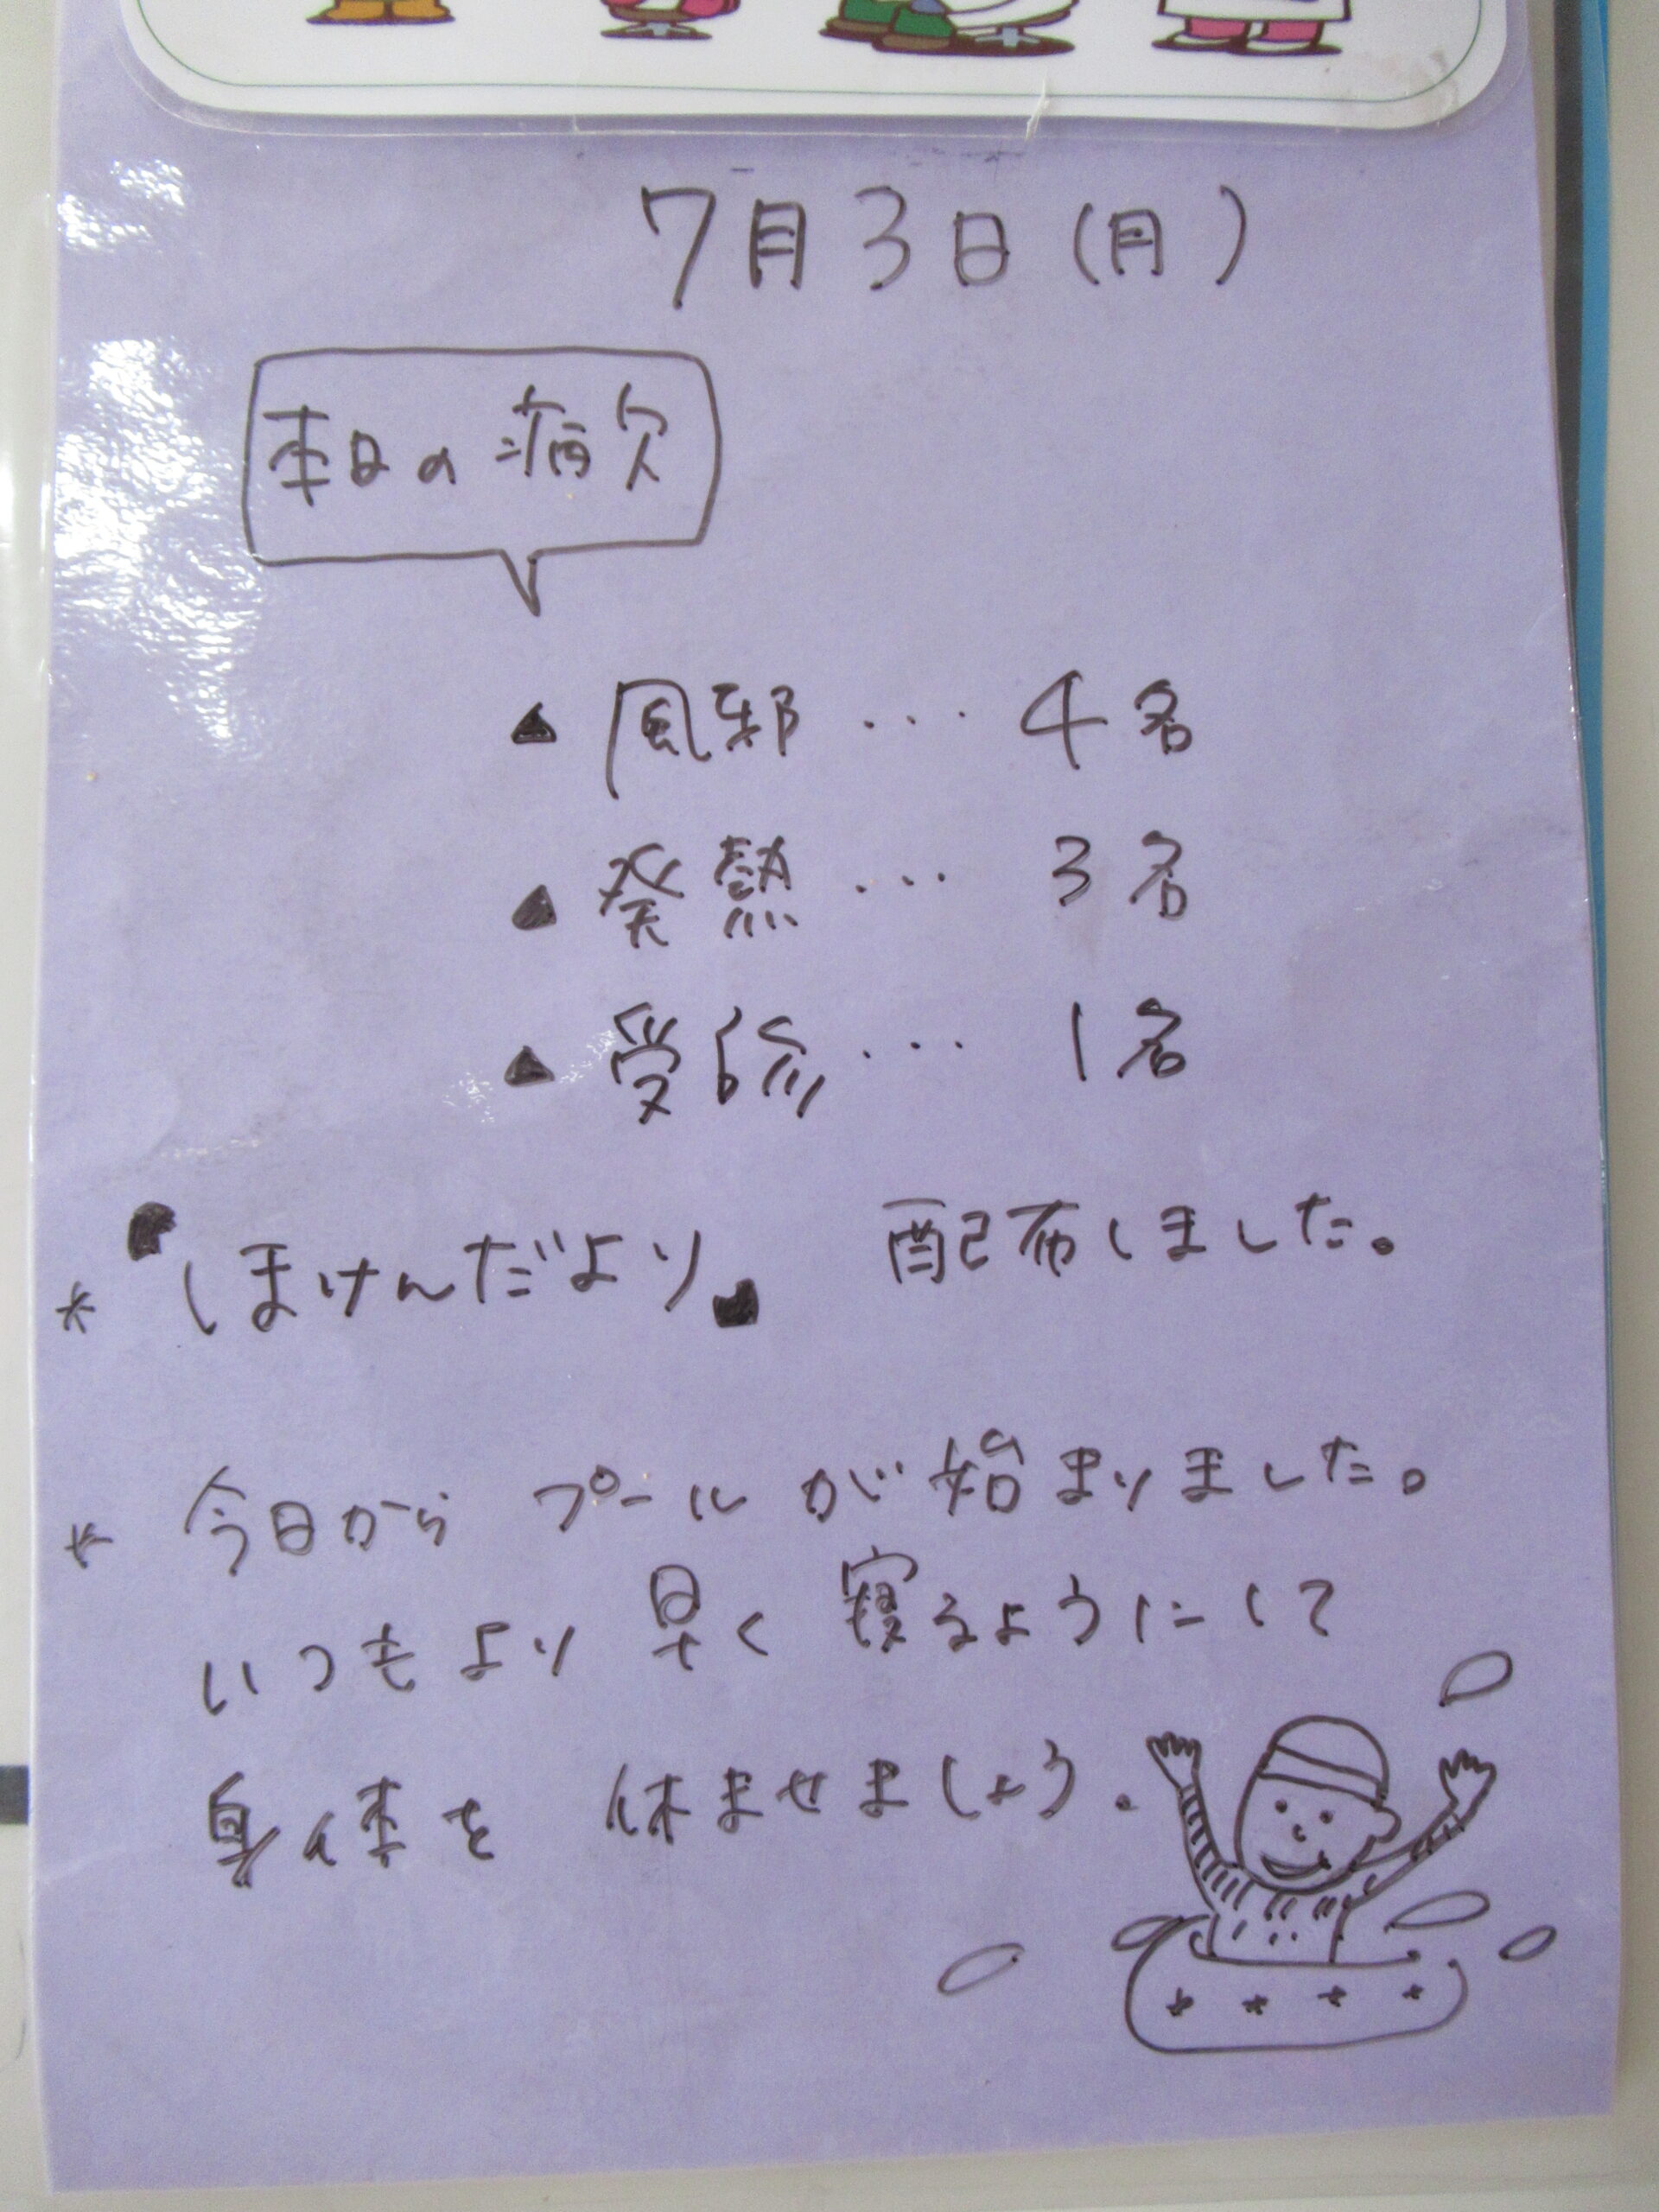 7月3日(月)
本日の病欠
▲ 風邪 ・・・ 4名
▲ 発熱 ・・・ 3名
▲ 受診 ・・・ 1名
* 『ほけんだより』 配布しました。
* 今日から プールが 始まりました。
いつもより 早く 寝るようにして
身体を 休ませましょう。